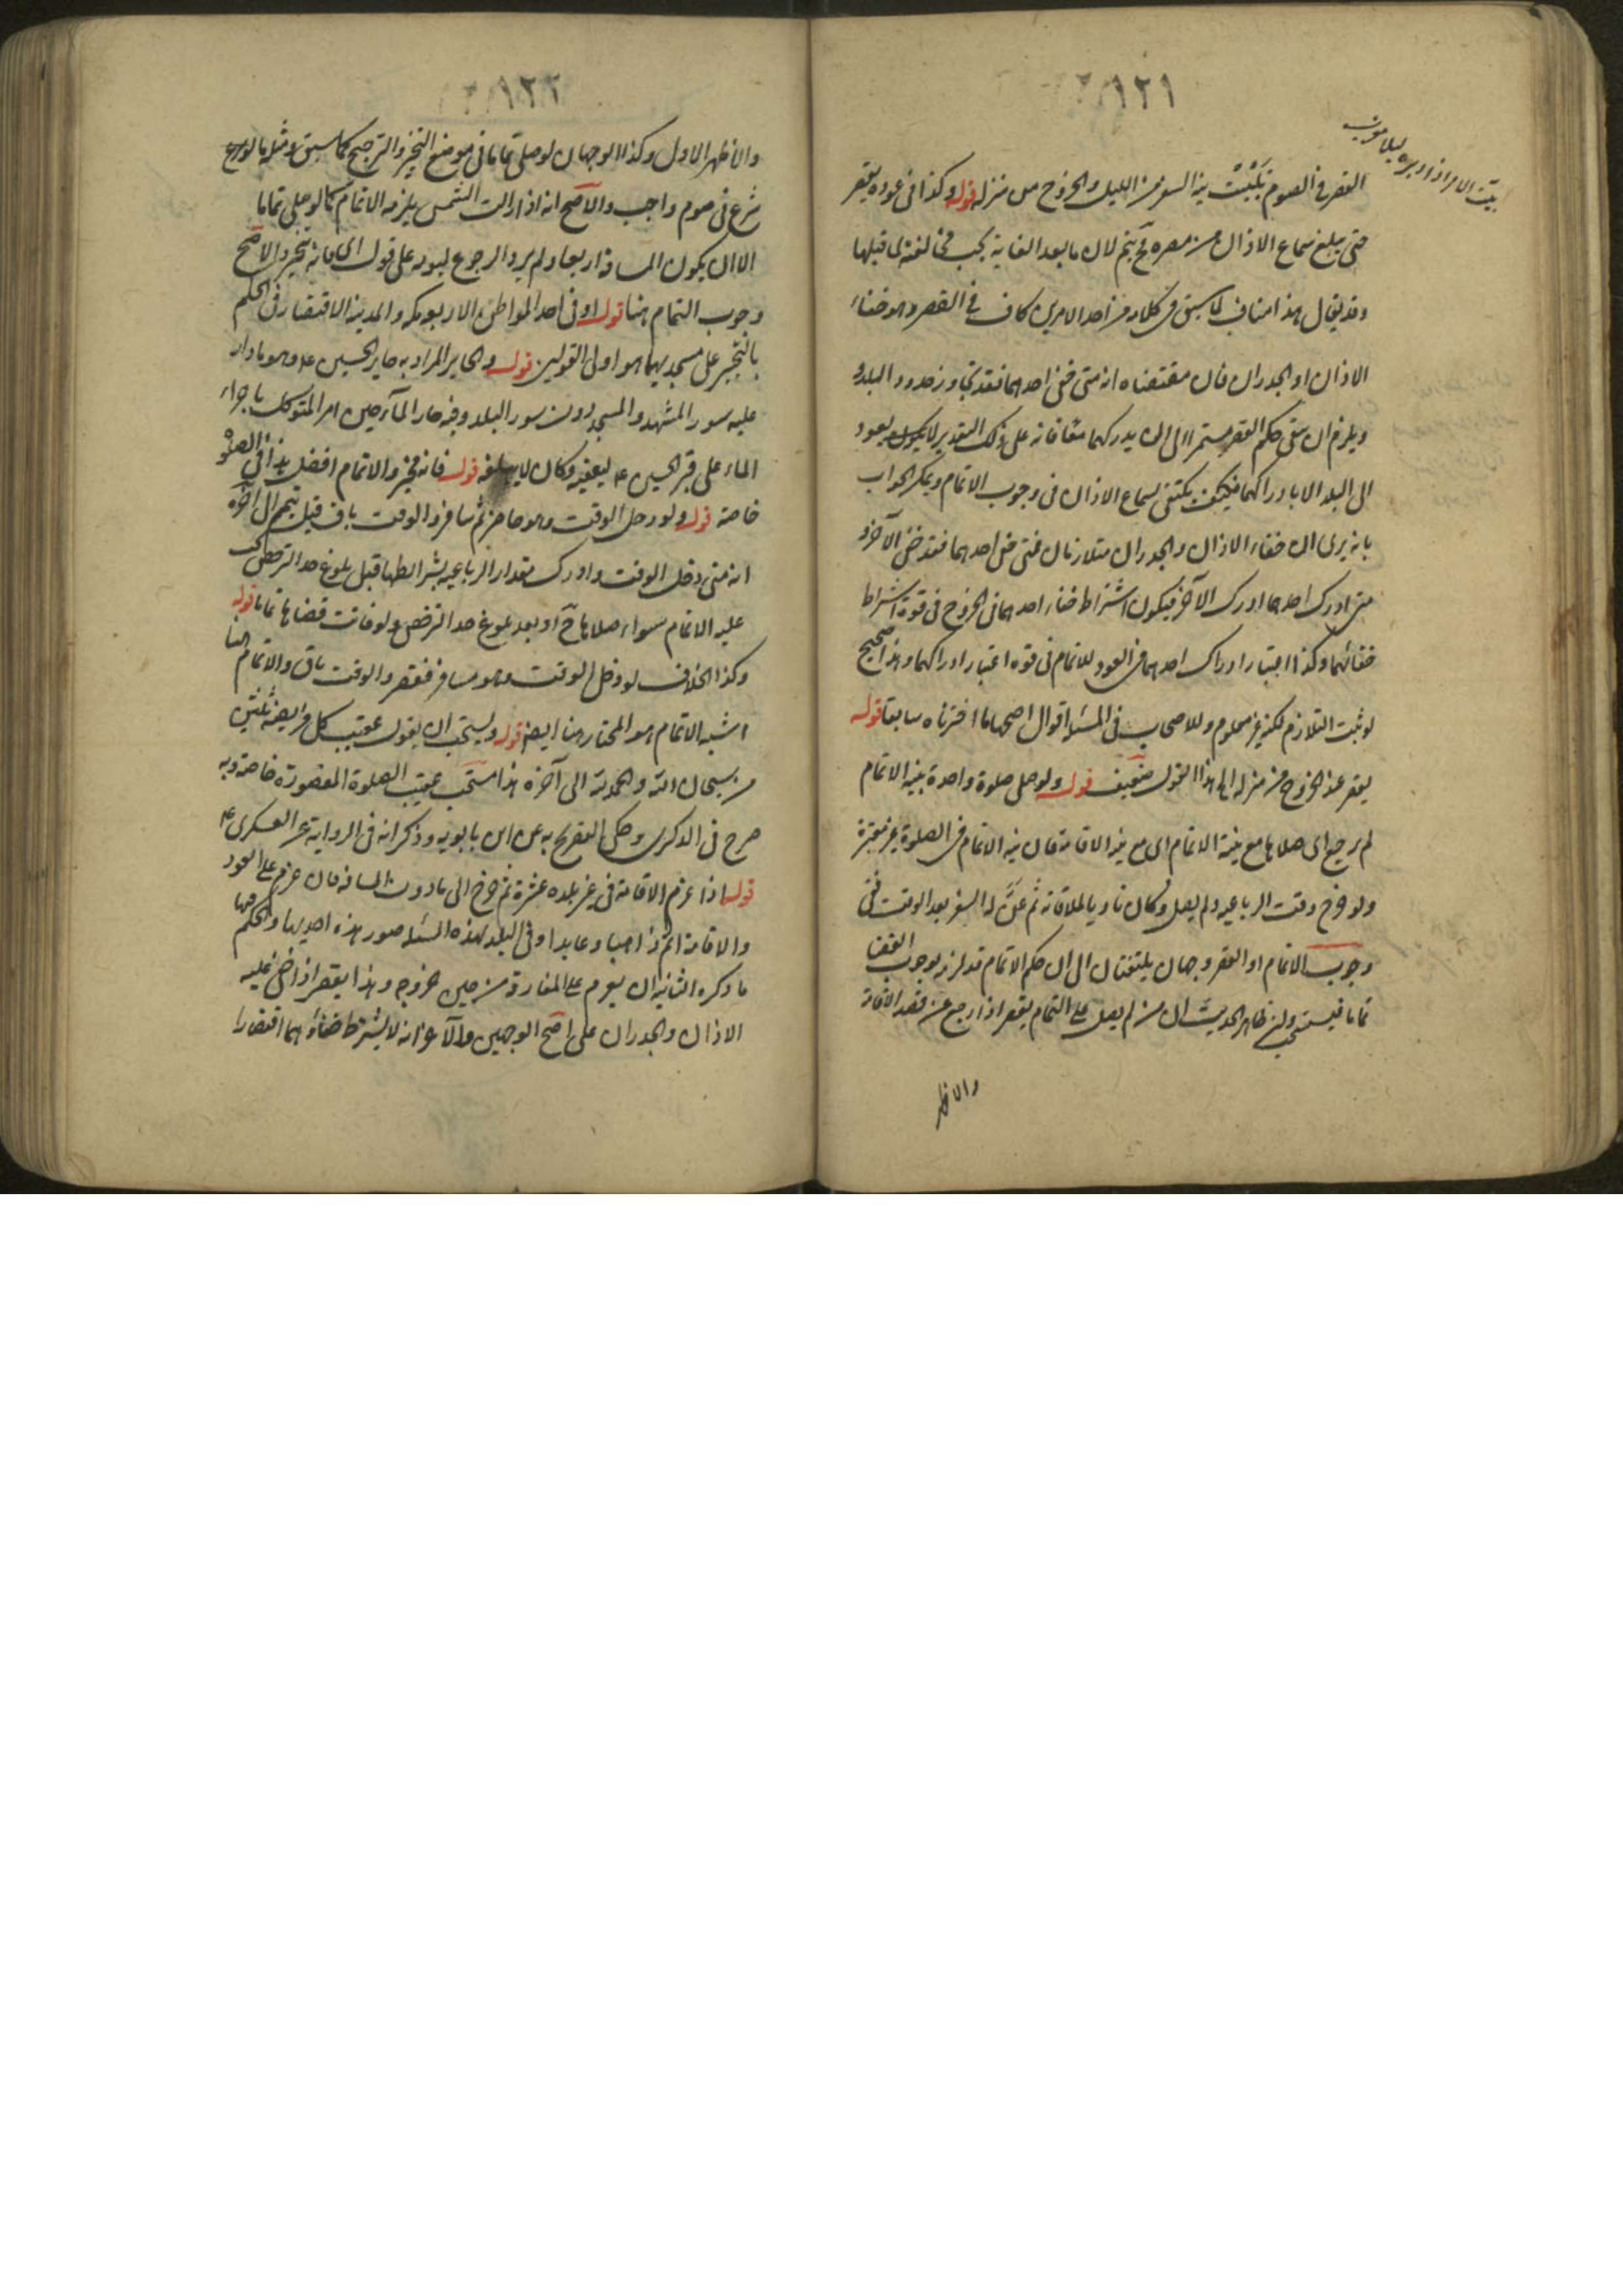 ١٢١
القصر في الصوم تبييت نية السفر من الليل والخروج من منزله قوله وكذا في عوده يقصر
حتى يبلغ سماع الاذان من مصره فح يتم لان ما بعد الغاية يجب مخالفته لما قبلها
وقد يقال هذا مناف لما سبق في كلامه من احد الامرين كاف في القصر وهو خفاء
الاذان او الجدران فان مقتضاه انه متى خفي احدهما فقد تجاوز حدود البلد و
ويلزم ان يبقى حكم القصر مستمرا الى ان يدركهما معا فانه على ذلك التقدير لا يكون يعود
الى البلد الا بادراكهما فكيف يكتفي بسماع الاذان في وجوب الاتمام ويمكن الجواب
بانه يرى ان خفاء الاذان والجدران متلازمان فمتى خفي احدهما فقد خفي الآخر و
متى ادرك احدهما ادرك الآخر فيكون اشتراط خفاء احدهما في الخروج في قوة اشتراط
خفائهما وكذا اعتبار ادراك احدهما في العود للاتمام في قوة اعتبار ادراكهما وهذا صحيح
لو ثبت التلازم لكنه غير معلوم وللاصحاب في المسئلة اقوال اصحها ما اخترناه سابقا قوله
يقصر عند الخروج من منزله الخ هذا القول ضعيف قوله ولو صلى صلوة واحدة بنية الاتمام
لم يرجع اى صلاها مع نية الاتمام اى مع نية الاقامة فان نية الاتمام في الصلوة غير معتبرة
ولو خرج وقت الرباعية ولم يصل وكان ناويا للاقامة ثم عن له السفر بعد الوقت ففي
وجوب الاتمام او القصر وجهان يلتفتان الى ان حكم الاتمام قد لزمه لوجوب القضاء
تماما فيستحب ومن ظاهر الحديث ان من لم يصل على التمام يقصر اذا رجع عن قصد الاقامة
والاظهر
١٢٢
والاظهر الاول وكذا الوجهان لو صلى تماما في موضع التخيير والترجيح كما سبق ومثله ما لو
شرع في صوم واجب والاصح انه اذا زالت الشمس يلزمه الاتمام كما لو صلى تماما
الا ان يكون المسافة اربعا ولم يرد الرجوع ليومه على قول اى فانه يتخير والاصح
وجوب التمام هنا قوله او في احد المواطن الاربعة مكة والمدينة الاقتصار في الحكم
بالتخيير على مسجديهما هو اولى القولين قوله والحاير المراد به حاير الحسين ع وهو ما دار
عليه سور المشهد والمسجد دون سور البلد وفيه حار الماء حين امر المتوكل باجراء
الماء على قبر الحسين ع ليعفيه وكان لا يبلغه قوله فانه مخير والاتمام افضل هذا في الصلوة
خاصة قوله ولو دخل الوقت وهو حاضر ثم سافر والوقت باق قيل يتم الى آخره
انه متى دخل الوقت وادرك مقدار الرباعية بشرائطها قبل بلوغ حد الترخص يجب
عليه الاتمام سواء صلاها ح او بعد بلوغ حد الترخص ولو فاتت قضاها تماما قوله
وكذا الخلاف لو دخل الوقت وهو مسافر فقصر والوقت باق والاتمام هنا
اشبه الاتمام هو المختار هنا ايضا قوله ويستحب ان يقول عقيب كل فريضة ثلثين
مرة سبحان الله والحمد لله الى آخره هذا مستحب عقيب الصلوة المقصورة خاصة وبه
صرح في الذكرى وحكى التصريح به عن ابن بابويه وذكر انه في الرواية عن العسكرى ع
قوله اذا عزم الاقامة في غير بلده عشرة ثم خرج الى ما دون المسافة فان عزم على العود
والاقامة اتم ذاهبا وعايدا وفي البلد لهذه المسئلة صور هذه احديها والحكم فيها
ما ذكره الثانية ان يعزم على المفارقة من حين خروجه وهذا يقصر اذا خفي عليه
الاذان والجدران على اصح الوجهين والآخر انه لا يشترط خفاؤهما اقتصارا